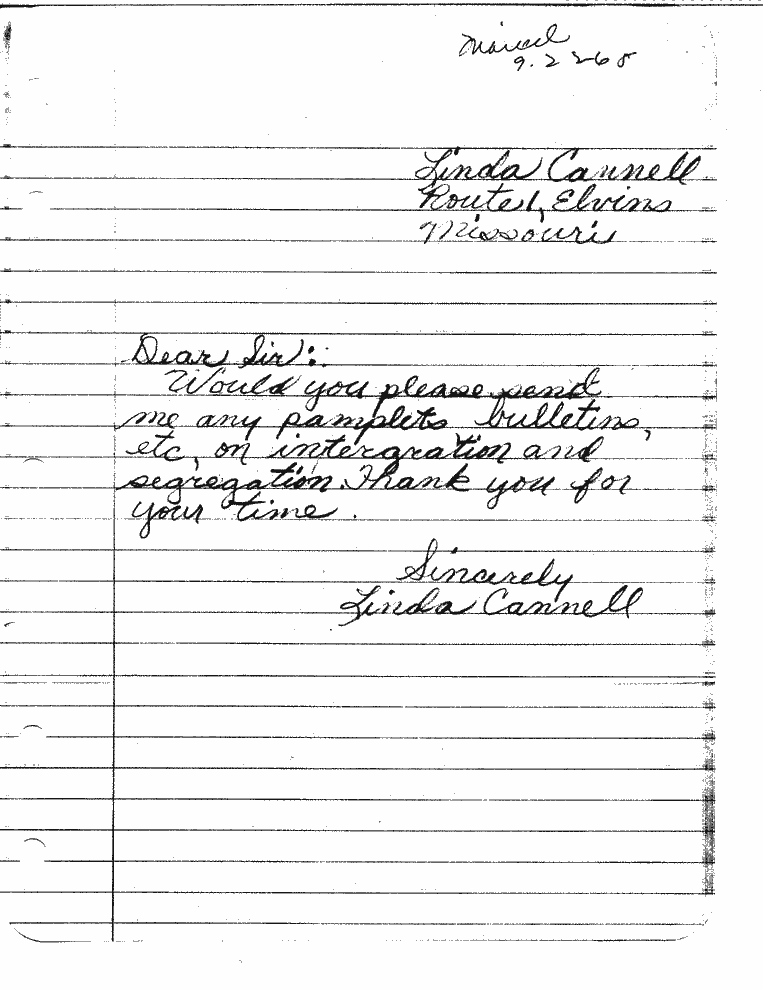 9.22-65
Linda Cannell
Route 1, Elvins
Missouri
Dear Sir:
Would you please send
me any pamplets bulletins,
etc, on intergration and
segregation. Thank you for
your time.
Sincerely
Linda Cannell